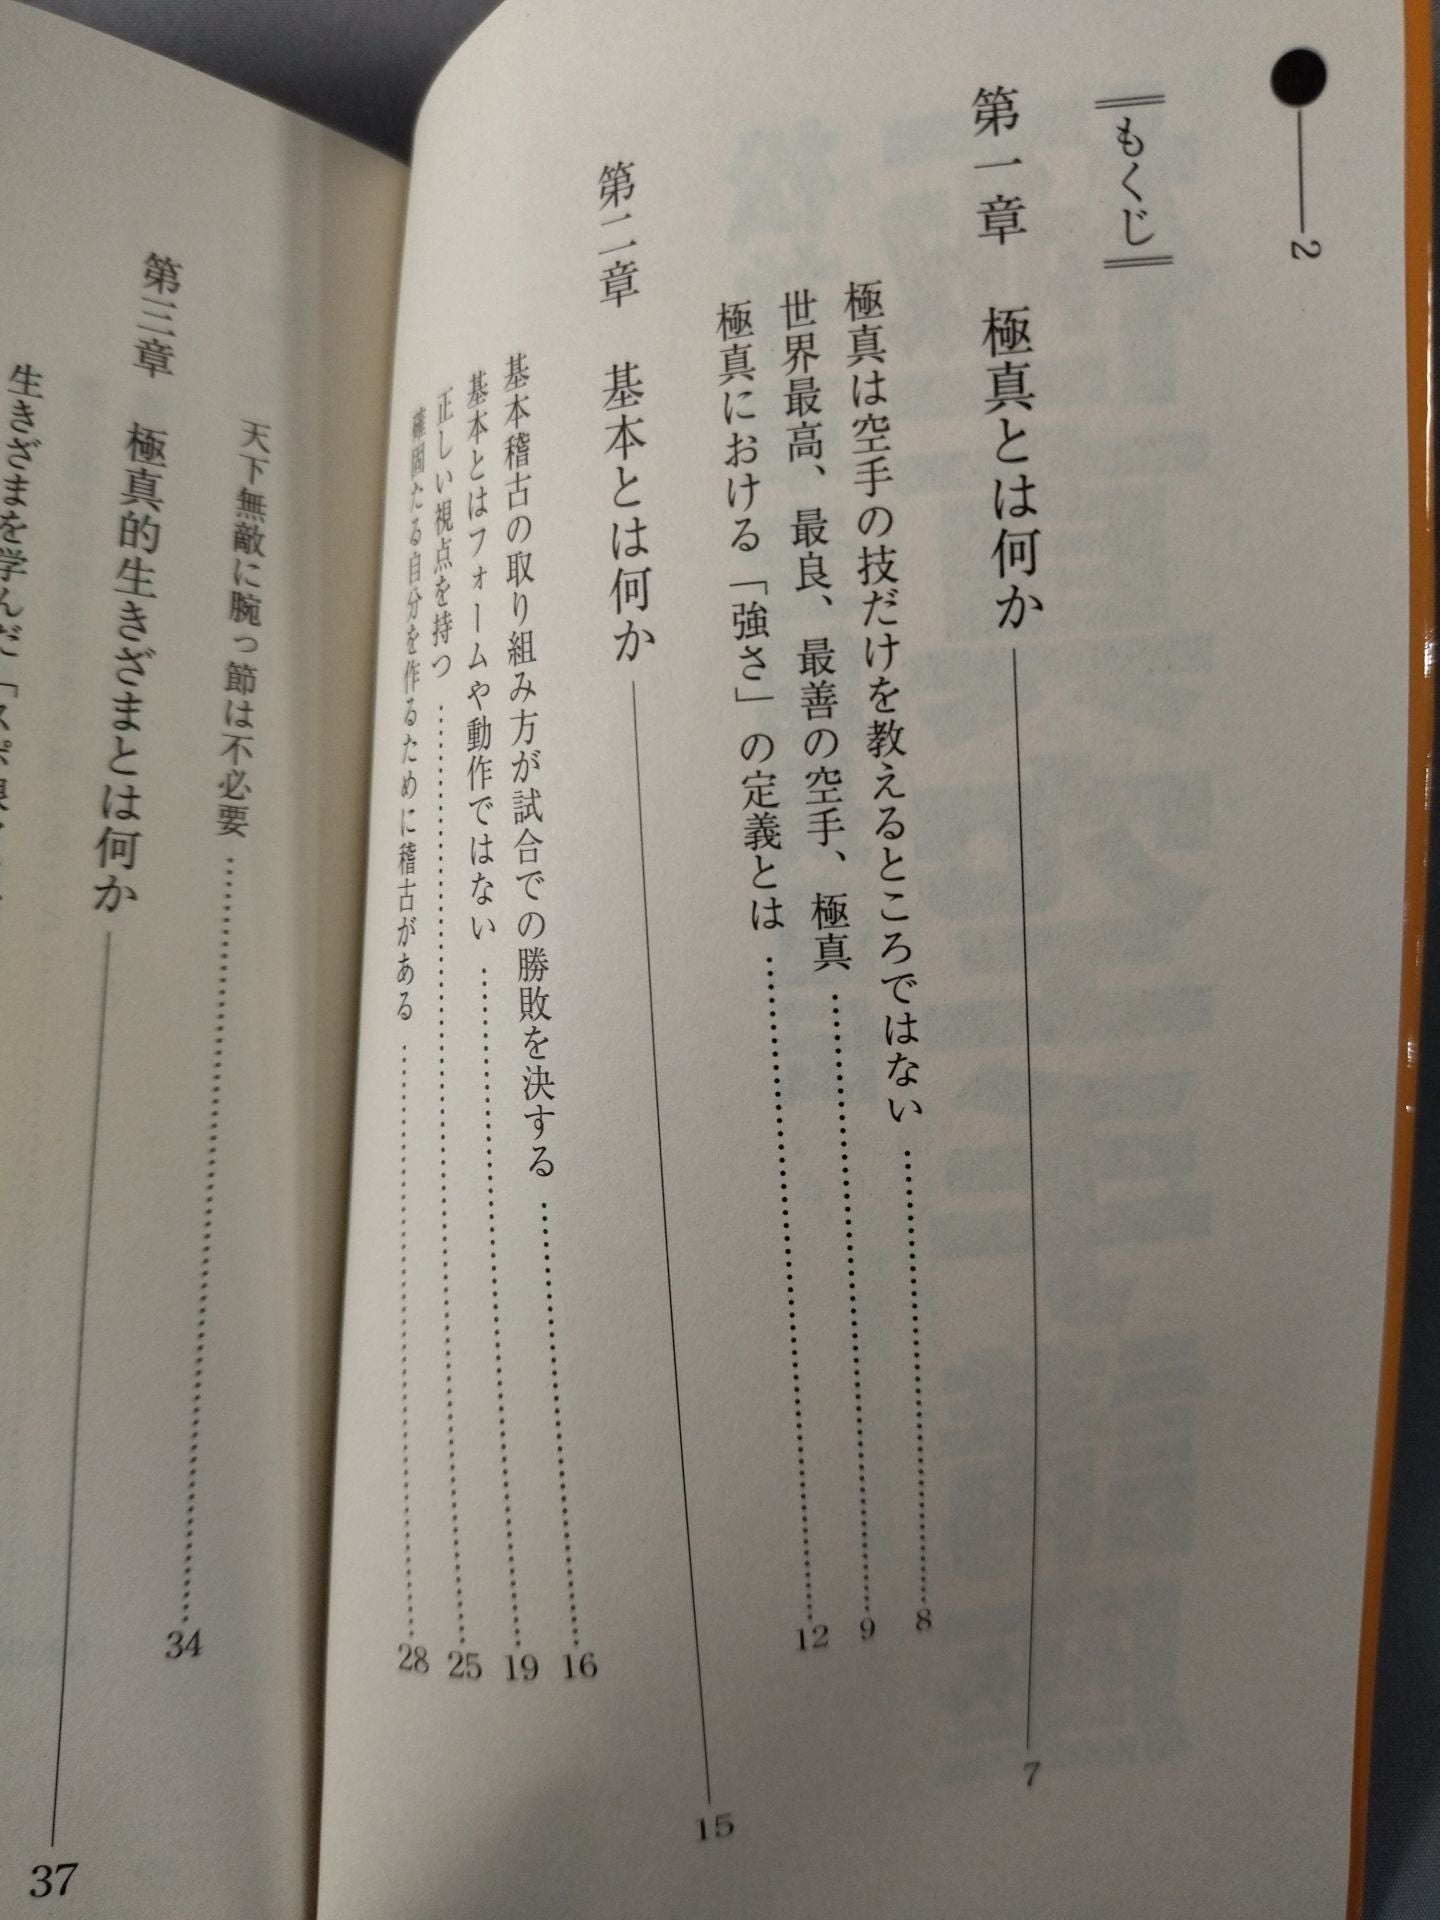 2
もくじ
第一章 極真とは何か 7
極真は空手の技だけを教えるところではない 8
世界最高、最良、最善の空手、極真 9
極真における「強さ」の定義とは 12
第二章 基本とは何か 15
基本稽古の取り組み方が試合での勝敗を決する 16
基本とはフォームや動作ではない 19
正しい視点を持つ 25
確固たる自分を作るために稽古がある 28
天下無敵に腕っ節は不必要 34
第三章 極真的生きざまとは何か 37
生きざまを学んだ「スポ根